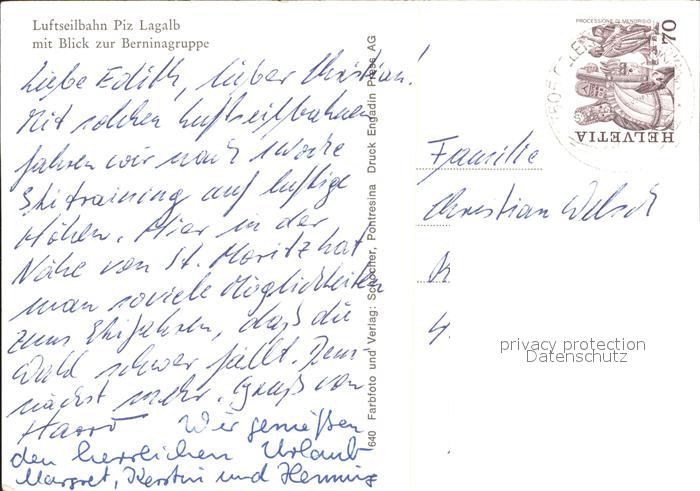 Luftseilbahn Piz Lagalb
mit Blick zur Berninagruppe
Liebe Edith, lieber Christian!
Mit solchen Luftseilbahnen
fahren wir nach 1 Woche
Skitraining auf luftige
Höhen. Hier in der
Nähe von St. Moritz hat
man soviele Möglichkeiten
zum Skifahren, daß die
Wahl schwer fällt. Dem-
nächst mehr. Gruß von
Wir genießen
den herrlichen Urlaub
Margret, Kerstin und Henning
640 Farbfoto und Verlag: Schocher, Pontresina Druck Engadin Press AG
PROCESSIONE DI MENDRISIO
70
HELVETIA
Familie
Christian Welsch
4.
privacy protection
Datenschutz